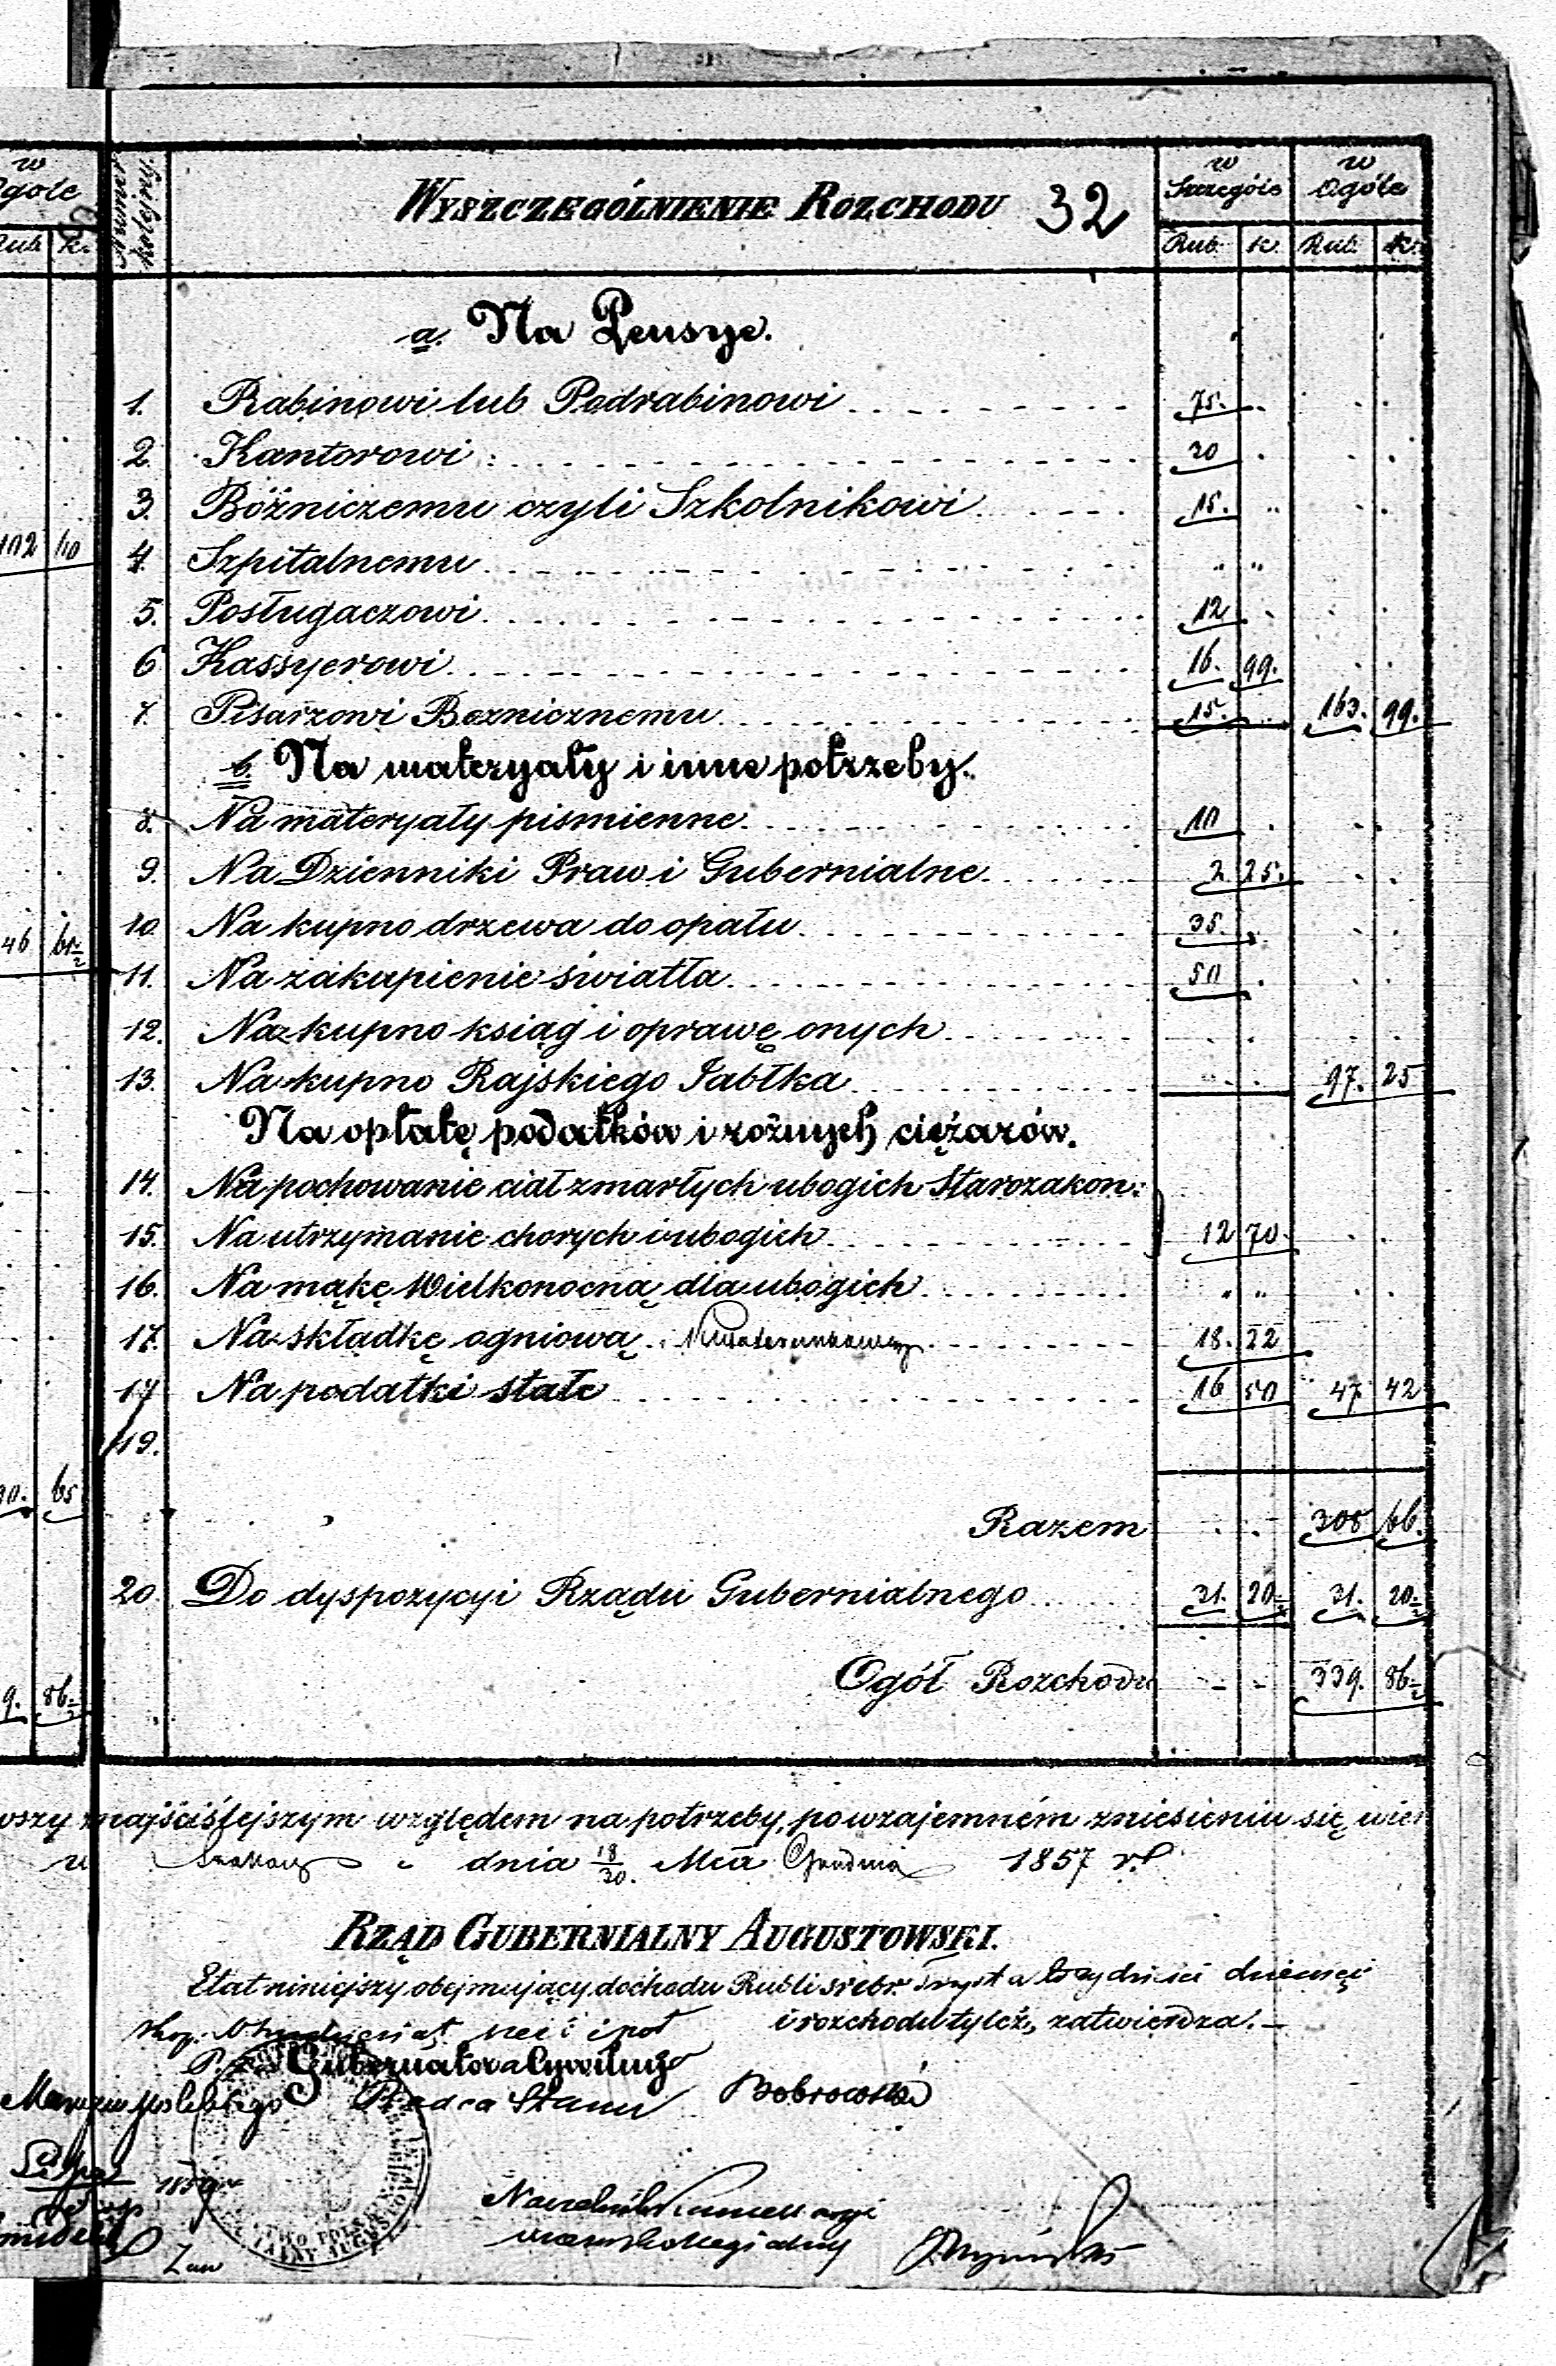 w Ogóle
Rub. k.
WYSZCZEGÓLNIENIE ROZCHODU 32
w Szczególe
w Ogóle
Rub. k. Rub. k.
a. Na Pensye.
1. Rabinowi lub Podrabinowi 75.
2. Kantorowi 30
3. Bóżniczemu czyli Szkolnikowi 15. "
102 60
4. Szpitalnemu " "
5. Posługaczowi 12
6 Kassyerowi 16. 99.
7. Pisarzowi Boznicznemu 15. 163. 99.
b. Na materyały i inne potrzeby.
8. Na materyały piśmienne 10
9. Na Dzienniki Praw i Gubernialne 2 25.
10. Na kupno drzewa do opału 35.
46 61½
11. Na zakupienie światła 50
12. Na kupno ksiąg i oprawę onych
13. Na kupno Rajskiego Jabłka 97. 25
Na opłatę podatków i rożnych ciężarów.
14. Na pochowanie ciał zmarłych ubogich Starozakon:
15. Na utrzymanie chorych i ubogich 12 70.
16. Na mąkę Wielkonocną dla ubogich " "
17. Na składkę ogniową 18. 22
17 Na podatki stałe 16 50 47 42
19.
90. 65
Razem 308 66.
20. Do dyspozycyi Rządu Gubernialnego 31. 20½ 31. 20½
9. 86½
Ogół Rozchodu 339. 86½
wszy z najściślejszym względem na potrzeby, po wzajemném zniesieniu się, wier
w dnia 18/30. Mca Grudnia 1857 r.
RZĄD GUBERNIALNY AUGUSTOWSKI.
Etat niniejszy obejmujący dochodu Rubli srebr. trzysta trzydzieści dziewięć
kop. ośmdziesiąt sześć i pół i rozchodu tyleż, zatwierdza.
Gubernatora Cywilnego
Radca Stanu Bobrowski
1859
Naczelnik Kancellaryi